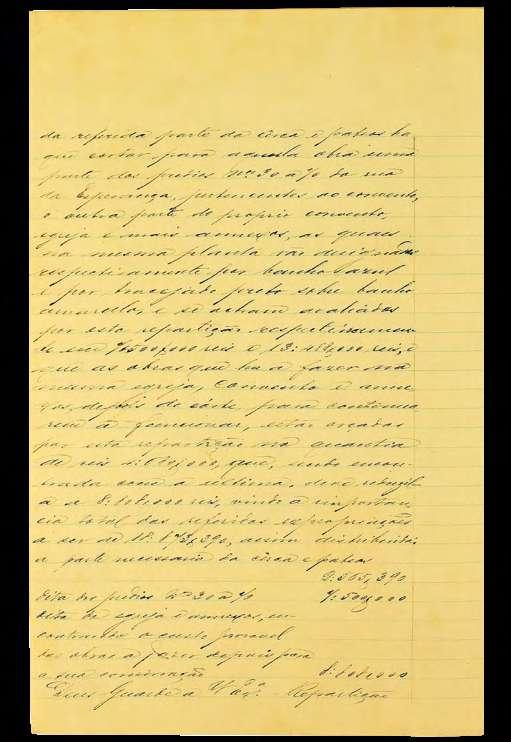 da referida parte da cêrca e pateos ha
que cortar para aquella obra uma
parte dos predios Nos 30 a 40 da rua
da Esperança, pertencentes ao convento,
e outra parte do proprio convento,
egreja e mais annexos, as quaes
na mesma planta vão designadas
respectivamente por banho azul
e por tracejado preto sobre banho
amarello, e se acham avaliados
por esta repartição respectivamen-
te em reis e reis, e
que as obras que ha a fazer na
mesma egreja, convento e anne-
xos, depois do córte, para continua-
rem a funccionar, estão orçadas
por esta repartição na quantia
de reis que, sendo encon-
trada com a ultima, deve
a a reis, vindo a importan-
cia total das referidas expropriações
a ser de assim distribuida:
a parte necessaria da cêrca e pateos
305,390
Dita dos predios Nos 30 a 40 500,000
Dita da egreja e annexos, en-
contrando o custo provavel
das obras a fazer depois para
a sua
Repartição